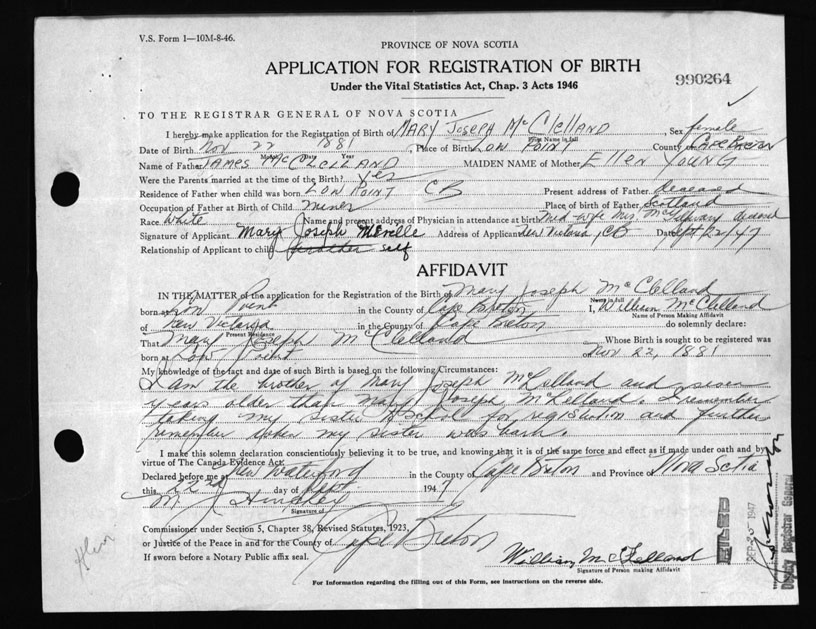 V.S. Form 1—10M-8-46.
PROVINCE OF NOVA SCOTIA
APPLICATION FOR REGISTRATION OF BIRTH
990264
Under the Vital Statistics Act, Chap. 3 Acts 1946
TO THE REGISTRAR GENERAL OF NOVA SCOTIA
I hereby make application for the Registration of Birth of MARY JOSEPH McClelland, Sex female
Print Name in Full
Date of Birth Nov 22 1881, Place of Birth LOW POINT County of CAPE BRETON
Month Date Year
Name of Father JAMES McCLELLAND MAIDEN NAME of Mother Ellen YOUNG
Were the Parents married at the time of the Birth? Yes
Residence of Father when child was born LOW POINT CB Present address of Father deceased
Occupation of Father at Birth of Child miner Place of birth of Father Scotland
Race White Name and present address of Physician in attendance at birth Mid-wife Mrs. deceased
Signature of Applicant Mary Joseph Address of Applicant New Victoria, CB Date Sept 22/47
Relationship of Applicant to child self
AFFIDAVIT
IN THE MATTER of the application for the Registration of the Birth of Mary Joseph McClelland
Name in full
born at Low Point in the County of Cape Breton I, William McClelland
Name of Person Making Affidavit
of New Victoria in the County of Cape Breton do solemnly declare:
Present Residence
That Mary Joseph McClelland Whose Birth is sought to be registered was
born at Low Point on Nov 22, 1881
My knowledge of the fact and date of such Birth is based on the following Circumstances:
I am the brother of Mary Joseph McLelland and
years older than Mary Joseph McLelland. I remember
taking my sister to School for registration and further
remember when my sister was born.
I make this solemn declaration conscientiously believing it to be true, and knowing that it is of the same force and effect as if made under oath and by
virtue of The Canada Evidence Act.
Declared before me at New Waterford in the County of Cape Breton and Province of Nova Scotia
this 22nd day of Sept 1947
M J
Signature of
Commissioner under Section 5, Chapter 38, Revised Statutes, 1923,
or Justice of the Peace in and for the County of Cape Breton
If sworn before a Notary Public affix seal.
William McClelland
Signature of Person making Affidavit
FILED
1947
Deputy Registrar General
For Information regarding the filling out of this Form, see instructions on the reverse side.